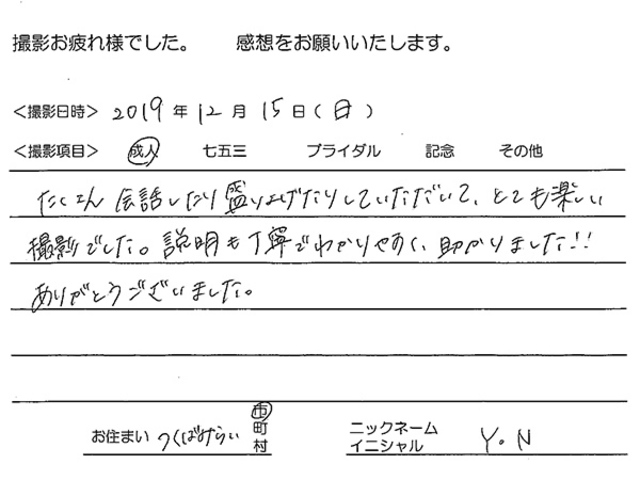 撮影お疲れ様でした。 感想をお願いいたします。
<撮影日時> 2019 年 12 月 15 日 ( 日 )
<撮影項目> 成人 七五三 ブライダル 記念 その他
たくさん会話したり盛り上げたりしていただいて、とても楽しい
撮影でした。説明も丁寧でわかりやすく、助かりました!!
ありがとうございました。
お住まい つくばみらい 市町村 ニックネーム イニシャル Y.N